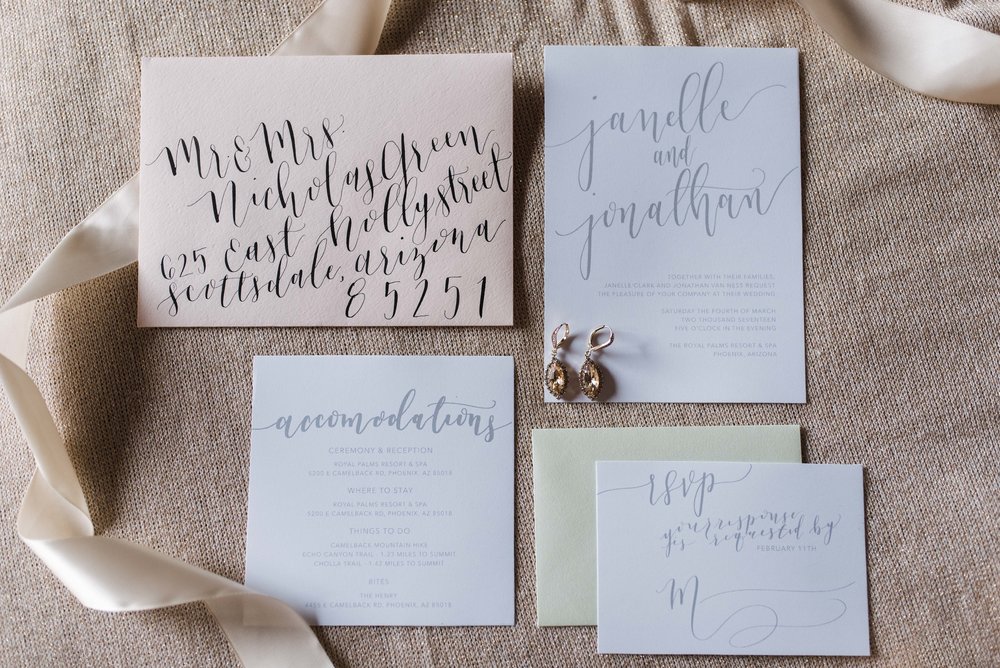 Mr & Mrs.
Nicholas Green
625 East Holly street
scottsdale, arizona
85251
janelle
and
jonathan
TOGETHER WITH THEIR FAMILIES,
JANELLE CLARK AND JONATHAN VAN NESS REQUEST
THE PLEASURE OF YOUR COMPANY AT THEIR WEDDING
SATURDAY THE FOURTH OF MARCH
TWO THOUSAND SEVENTEEN
FIVE O'CLOCK IN THE EVENING
THE ROYAL PALMS RESORT & SPA
PHOENIX, ARIZONA
accomodations
CEREMONY & RECEPTION
ROYAL PALMS RESORT & SPA
5200 E CAMELBACK RD, PHOENIX, AZ 85018
WHERE TO STAY
ROYAL PALMS RESORT & SPA
5200 E CAMELBACK RD, PHOENIX, AZ 85018
THINGS TO DO
CAMELBACK MOUNTAIN HIKE
ECHO CANYON TRAIL - 1.23 MILES TO SUMMIT
CHOLLA TRAIL - 1.42 MILES TO SUMMIT
BITES
THE HENRY
4455 E CAMELBACK RD, PHOENIX, AZ 85018
rsvp
your response
is requested by
FEBRUARY 11TH
M